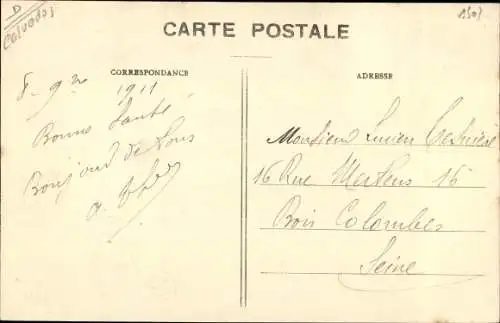 D
Calvados
1503
CARTE POSTALE
CORRESPONDANCE
ADRESSE
8 - 9
1911
Bonne Santé
Bonjour de tous
Monsieur Lucien
16 Rue Mertens 16
Bois Colombes
Seine